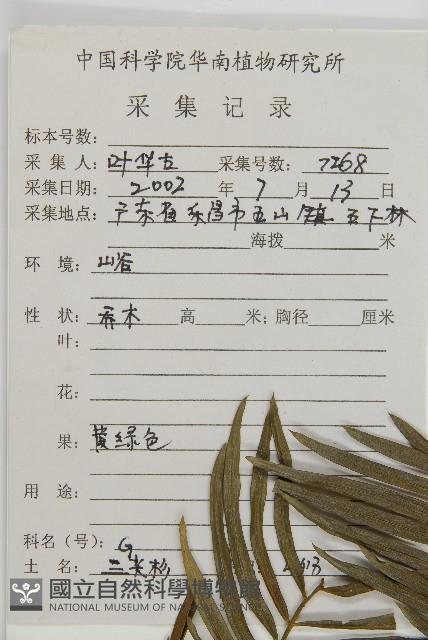 中国科学院华南植物研究所
采集记录
标本号数：
采集人：叶华古 采集号数：7268
采集日期：2002年7月13日
采集地点：广东省乐昌市五山镇
海拨 米
环境：山谷
性状：乔木 高 米；胸径 厘米
叶：
花：
果：黄绿色
用途：
科名（号）：G
土名：三尖杉
國立自然科學博物館
NATIONAL MUSEUM OF NATURAL SCIENCE